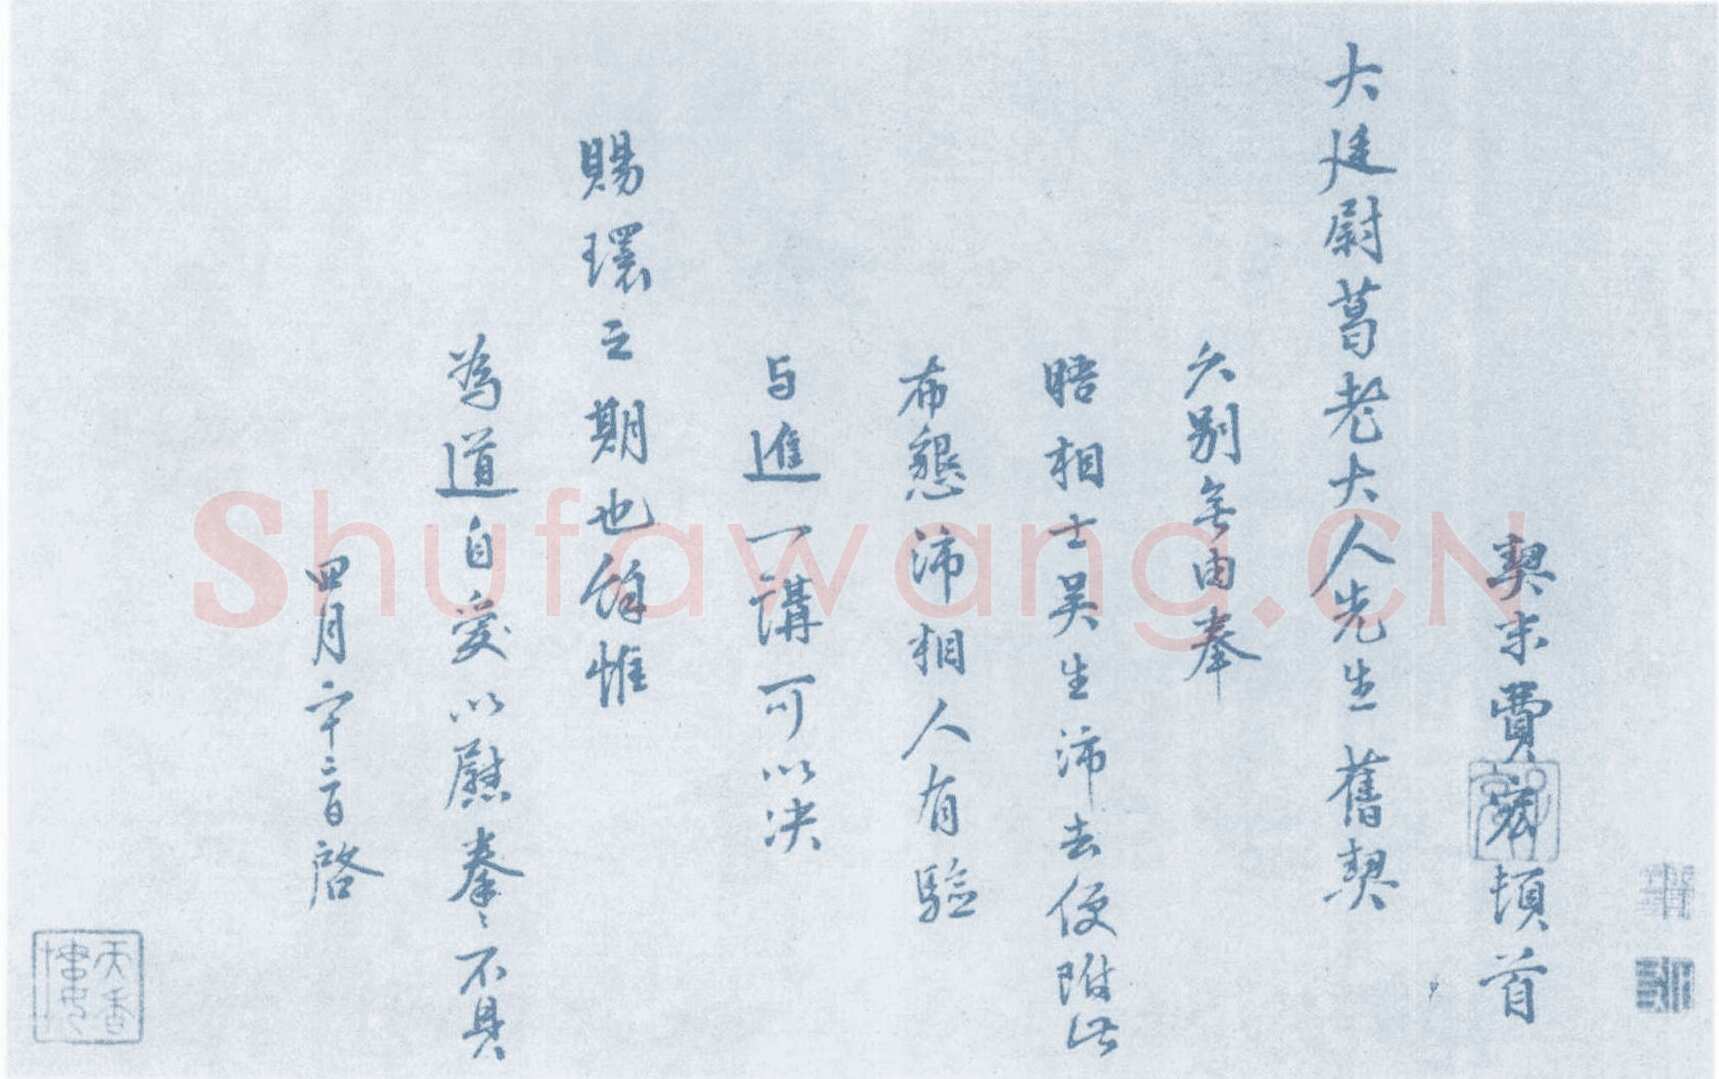 契末費宏頓首
大廷尉葛老大人先生舊契
久別無由奉
晤相士吴生沛去便附此
布懇沛相人有驗
与進一講可以决
賜環之期也餘惟
為道自愛以慰拳〻不具
四月六日啓
天香樓
Shufawang.CN